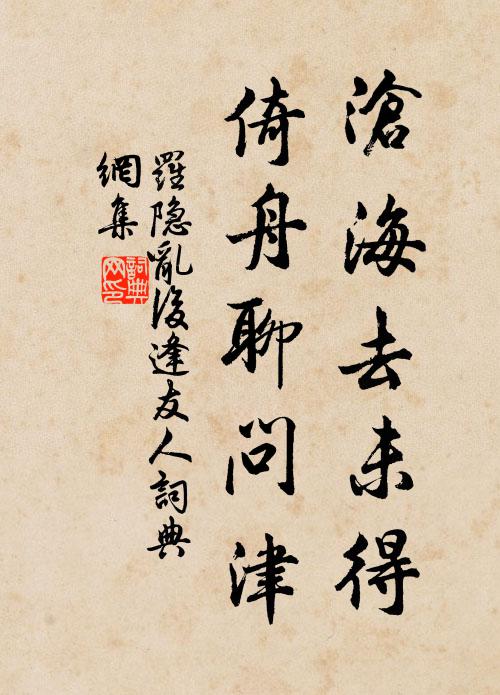 滄海去未得
倚舟聊問津
羅隐亂後逢友人詞典
網集
詞典
网印